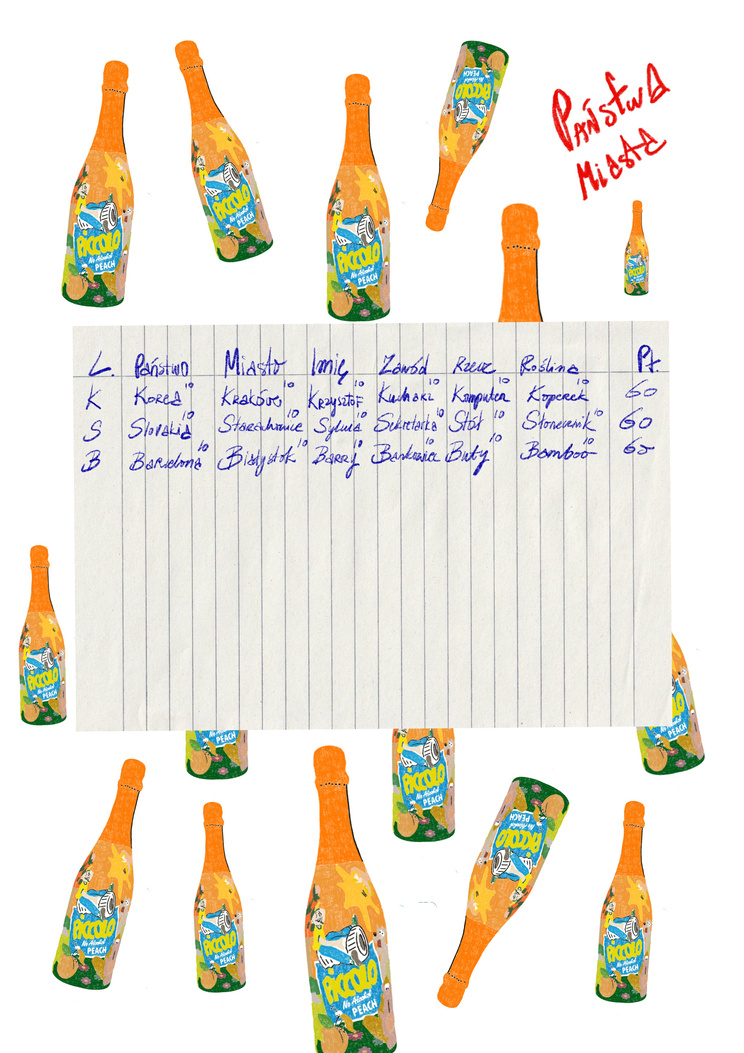 PAństwa
Miasta
PiCCOLO
No Alcohol
PEACH
PiCCOLO
No Alcohol
PEACH
PiCCOLO
No Alcohol
PEACH
PiCCOLO
No Alcohol
PEACH
PiCCOLO
L. Państwo Miasto Imię Zawód Rzecz Roślina Pt.
K Korea 10 Kraków 10 Krzysztof 10 Kucharz 10 Komputer 10 Koperek 10 60
S Slovakia 10 Starachowice 10 Sylwia 10 Sekretarka 10 Stół 10 Słonecznik 10 60
B Barcelona 10 Białystok 10 Barry 10 Bankowiec Buty 10 Bamboo 10 60
PiCCOLO
No Alcohol
PEACH
PiCCOLO
No Alcohol
PEACH
No Alcohol
PEACH
PiCCOLO
No Alcohol
PEACH
PiCCOLO
No Alcohol
PEACH
PiCCOLO
No Alcohol
PEACH
PiCCOLO
No Alcohol
PEACH
PiCCOLO
No Alcohol
PEACH
PiCCOLO
No Alcohol
PEACH